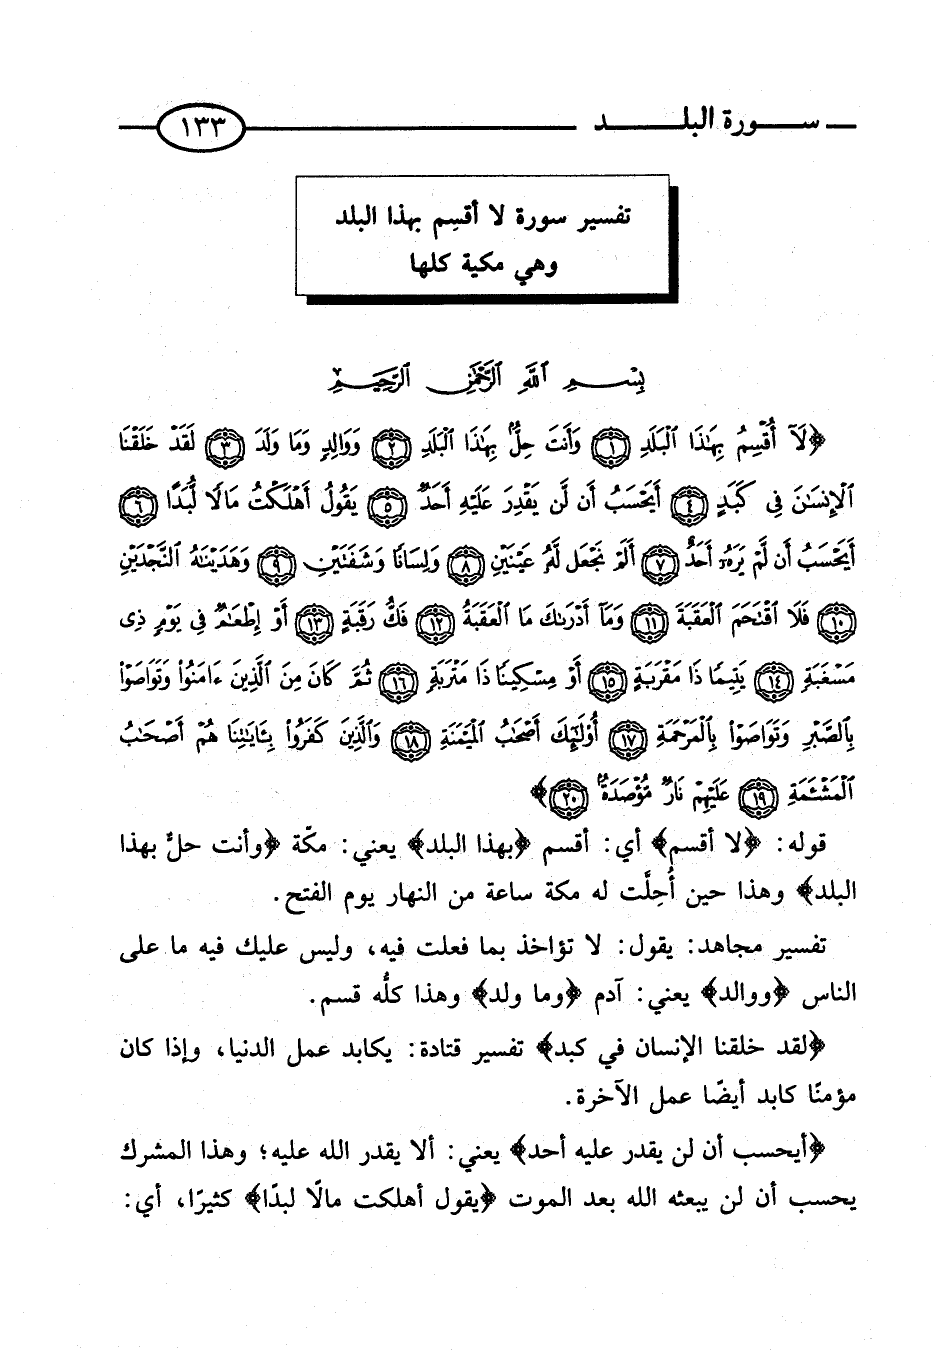 سورة البلد ١٣٣
تفسير سورة لا أقسِم بهذا البلد
وهي مكية كلها
بِسْمِ ٱللَّهِ ٱلرَّحْمَٰنِ ٱلرَّحِيمِ
﴿لَآ أُقْسِمُ بِهَٰذَا ٱلْبَلَدِ ١ وَأَنتَ حِلٌّۢ بِهَٰذَا ٱلْبَلَدِ ٢ وَوَالِدٍ وَمَا وَلَدَ ٣ لَقَدْ خَلَقْنَا
ٱلْإِنسَٰنَ فِى كَبَدٍ ٤ أَيَحْسَبُ أَن لَّن يَقْدِرَ عَلَيْهِ أَحَدٌ ٥ يَقُولُ أَهْلَكْتُ مَالًا لُّبَدًا ٦
أَيَحْسَبُ أَن لَّمْ يَرَهُۥٓ أَحَدٌ ٧ أَلَمْ نَجْعَل لَّهُۥ عَيْنَيْنِ ٨ وَلِسَانًا وَشَفَتَيْنِ ٩ وَهَدَيْنَٰهُ ٱلنَّجْدَيْنِ
١٠ فَلَا ٱقْتَحَمَ ٱلْعَقَبَةَ ١١ وَمَآ أَدْرَىٰكَ مَا ٱلْعَقَبَةُ ١٢ فَكُّ رَقَبَةٍ ١٣ أَوْ إِطْعَٰمٌ فِى يَوْمٍ ذِى
مَسْغَبَةٍ ١٤ يَتِيمًا ذَا مَقْرَبَةٍ ١٥ أَوْ مِسْكِينًا ذَا مَتْرَبَةٍ ١٦ ثُمَّ كَانَ مِنَ ٱلَّذِينَ ءَامَنُوا۟ وَتَوَاصَوْا۟
بِٱلصَّبْرِ وَتَوَاصَوْا۟ بِٱلْمَرْحَمَةِ ١٧ أُو۟لَٰٓئِكَ أَصْحَٰبُ ٱلْمَيْمَنَةِ ١٨ وَٱلَّذِينَ كَفَرُوا۟ بِـَٔايَٰتِنَا هُمْ أَصْحَٰبُ
ٱلْمَشْـَٔمَةِ ١٩ عَلَيْهِمْ نَارٌ مُّؤْصَدَةٌۢ ٢٠﴾
قوله: ﴿لا أقسم﴾ أي: أقسم ﴿بهذا البلد﴾ يعني: مكّة ﴿وأنت حلٌّ بهذا
البلد﴾ وهذا حين أُحِلَّت له مكة ساعة من النهار يوم الفتح.
تفسير مجاهد: يقول: لا تؤاخذ بما فعلت فيه، وليس عليك فيه ما على
الناس ﴿ووالد﴾ يعني: آدم ﴿وما ولد﴾ وهذا كلُّه قسم.
﴿لقد خلقنا الإنسان في كبد﴾ تفسير قتادة: يكابد عمل الدنيا، وإذا كان
مؤمنًا كابد أيضًا عمل الآخرة.
﴿أيحسب أن لن يقدر عليه أحد﴾ يعني: ألا يقدر الله عليه؛ وهذا المشرك
يحسب أن لن يبعثه الله بعد الموت ﴿يقول أهلكت مالًا لبدًا﴾ كثيرًا، أي: